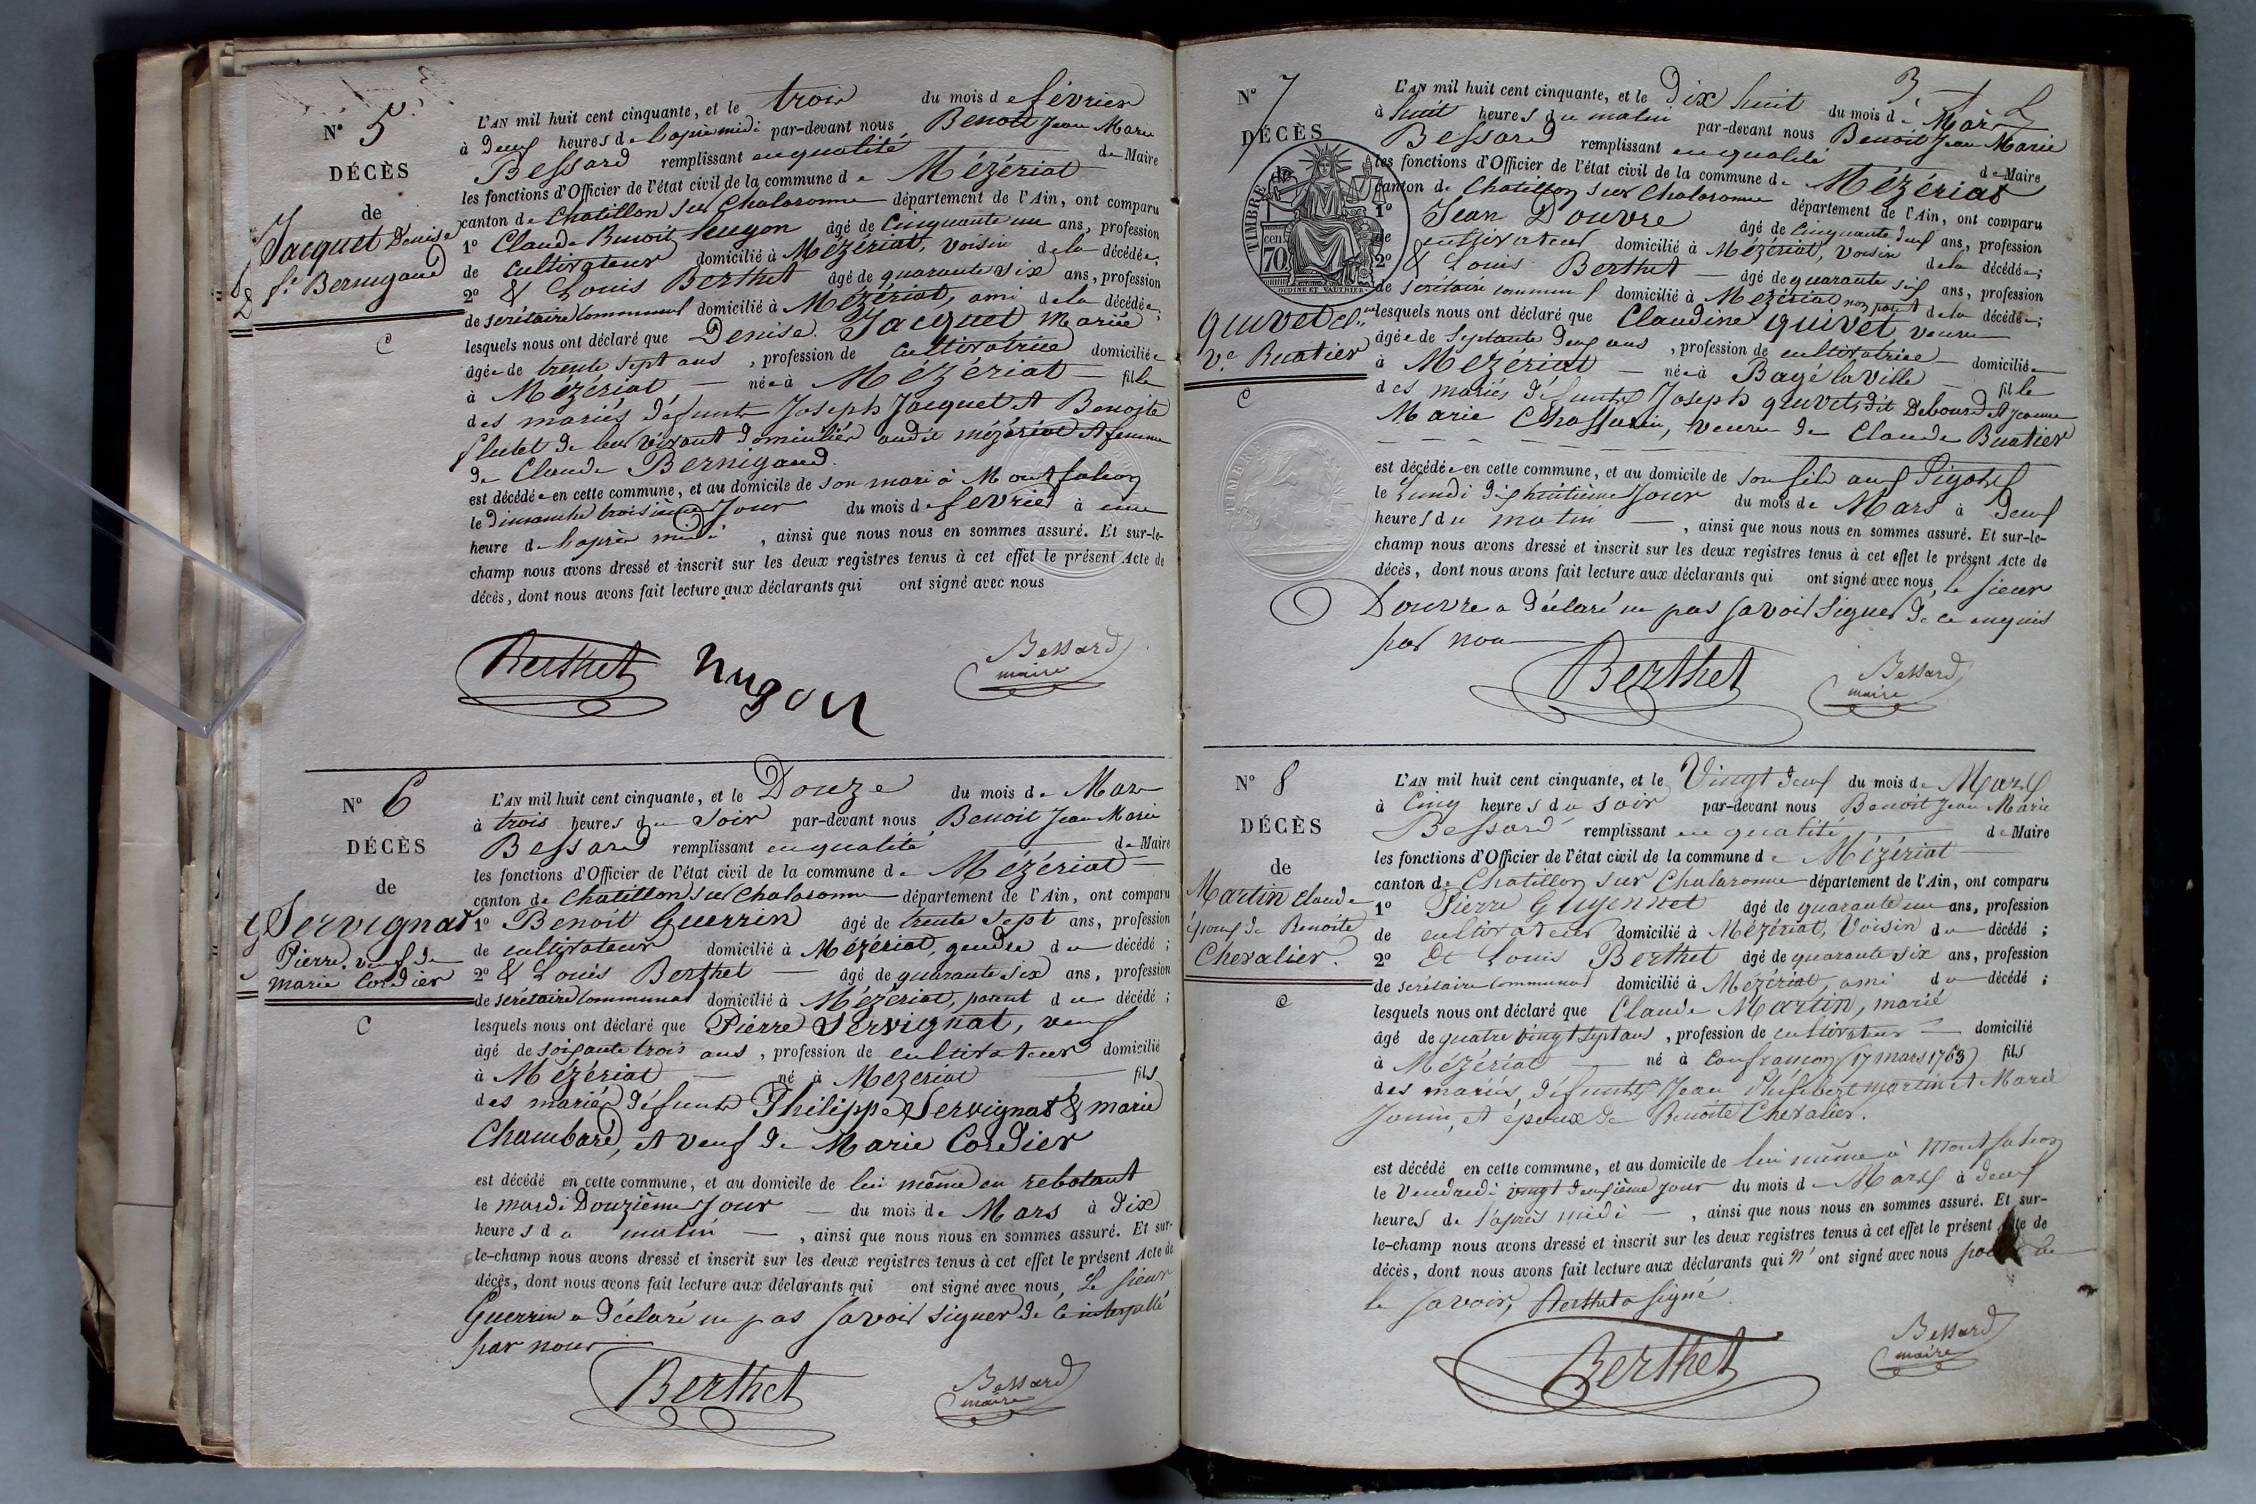 N° 5
DÉCÈS
de
Jacquet Denise
fe Bernigaud
C
L'AN mil huit cent cinquante, et le trois du mois de février
à deux heures de l'après midi par-devant nous Benoit Jean Marie
Bessard remplissant en qualité de Maire
les fonctions d'Officier de l'état civil de la commune de Mézériat
canton de Chatillon sur Chalaronne département de l'Ain, ont comparu
1° Claude Benoit Nugon âgé de cinquante un ans, profession
de cultivateur domicilié à Mézériat, voisin de la décédée;
2° & Louis Berthet âgé de quarante six ans, profession
de secrétaire communal domicilié à Mézériat, ami de la décédée;
lesquels nous ont déclaré que Denise Jacquet mariée
âgée de trente sept ans, profession de cultivatrice domiciliée
à Mézériat — née à Mézériat — fille
des mariés défunts Joseph Jacquet et Benoite
flutet de leur vivant domiciliés audit mézériat et femme
de Claude Bernigaud.
est décédée en cette commune, et au domicile de son mari à Montfalcon
le dimanche troisième jour du mois de février à une
heure de l'après midi, ainsi que nous nous en sommes assuré. Et sur-le-
champ nous avons dressé et inscrit sur les deux registres tenus à cet effet le présent Acte de
décès, dont nous avons fait lecture aux déclarants qui ont signé avec nous
Berthet Nugon Bessard
maire
N° 6
DÉCÈS
de
Servignat
Pierre, veuf de
marie Cordier
C
L'AN mil huit cent cinquante, et le Douze du mois de Mars
à trois heures du soir par-devant nous Benoit Jean Marie
Bessard remplissant en qualité de Maire
les fonctions d'Officier de l'état civil de la commune de Mézériat
canton de Chatillon sur Chalaronne département de l'Ain, ont comparu
1° Benoit Guerrin âgé de trente sept ans, profession
de cultivateur domicilié à Mézériat, gendre du décédé;
2° & Louis Berthet — âgé de quarante six ans, profession
de secrétaire communal domicilié à Mézériat, parent du décédé;
lesquels nous ont déclaré que Pierre Servignat, veuf
âgé de soixante trois ans, profession de cultivateur domicilié
à Mézériat — né à Mézériat — fils
des mariés défunts Philippe Servignat & marie
Chambard, et veuf de Marie Cordier
est décédé en cette commune, et au domicile de lui même en rebotant
le mardi Douzième jour — du mois de Mars à dix
heures du matin —, ainsi que nous nous en sommes assuré. Et sur-
le-champ nous avons dressé et inscrit sur les deux registres tenus à cet effet le présent Acte de
décès, dont nous avons fait lecture aux déclarants qui ont signé avec nous, le sieur
Guerrin a déclaré ne pas savoir signer de ce interpellé
par nous
Berthet Bessard
maire
3
N° 7
DÉCÈS
de
TIMBRE
70 cen.
OUDINE ET VAUTHIER
quivet Cl.ne
Ve Buatier
C
L'AN mil huit cent cinquante, et le Dix huit du mois de Mars
à huit heures du matin par-devant nous Benoit Jean Marie
Bessard remplissant en qualité de Maire
les fonctions d'Officier de l'état civil de la commune de Mézériat
canton de Chatillon sur Chalaronne département de l'Ain, ont comparu
1° Jean Douvre âgé de cinquante deux ans, profession
de cultivateur domicilié à Mézériat, voisin de la décédée;
2° & Louis Berthet — âgé de quarante six ans, profession
de secrétaire communal domicilié à Mézériat non parent de la décédée;
lesquels nous ont déclaré que Claudine quivet, veuve
âgée de septante deux ans, profession de cultivatrice — domiciliée
à Mézériat — née à Bagé la Ville — fille
des mariés défunts Joseph quivet, dit Debourd et Jeanne
Marie Chassurin, veuve de Claude Buatier
est décédée en cette commune, et au domicile de son fils aux Pigots
le Lundi dix huitième jour du mois de Mars à deux
heures du matin —, ainsi que nous nous en sommes assuré. Et sur-le-
champ nous avons dressé et inscrit sur les deux registres tenus à cet effet le présent Acte de
décès, dont nous avons fait lecture aux déclarants qui ont signé avec nous, le sieur
Douvre a déclaré ne pas savoir signer de ce enquis
par nous
Berthet Bessard
maire
N° 8
DÉCÈS
de
Martin Claude
époux de Benoite
Chevalier.
C
L'AN mil huit cent cinquante, et le Vingt deux du mois de Mars
à Cinq heures du soir par-devant nous Benoit Jean Marie
Bessard remplissant en qualité de Maire
les fonctions d'Officier de l'état civil de la commune de Mézériat
canton de Chatillon sur Chalaronne département de l'Ain, ont comparu
1° Pierre Guyennet âgé de quarante un ans, profession
de cultivateur domicilié à Mézériat, voisin du décédé;
2° Et Louis Berthet âgé de quarante six ans, profession
de secrétaire communal domicilié à Mézériat, ami du décédé;
lesquels nous ont déclaré que Claude Martin, marié
âgé de quatre vingt sept ans, profession de cultivateur — domicilié
à Mézériat — né à Confrançon (17 mars 1763) fils
des mariés, défunts Jean Philibert martin et Marie
Jouin, et époux de Benoite Chevalier.
est décédé en cette commune, et au domicile de lui même à Montfalcon
le Vendredi vingt deuxième jour du mois de Mars à deux
heures de l'après midi —, ainsi que nous nous en sommes assuré. Et sur-
le-champ nous avons dressé et inscrit sur les deux registres tenus à cet effet le présent Acte de
décès, dont nous avons fait lecture aux déclarants qui n'ont signé avec nous pour ne
le savoir, Berthet a signé.
Berthet Bessard
maire